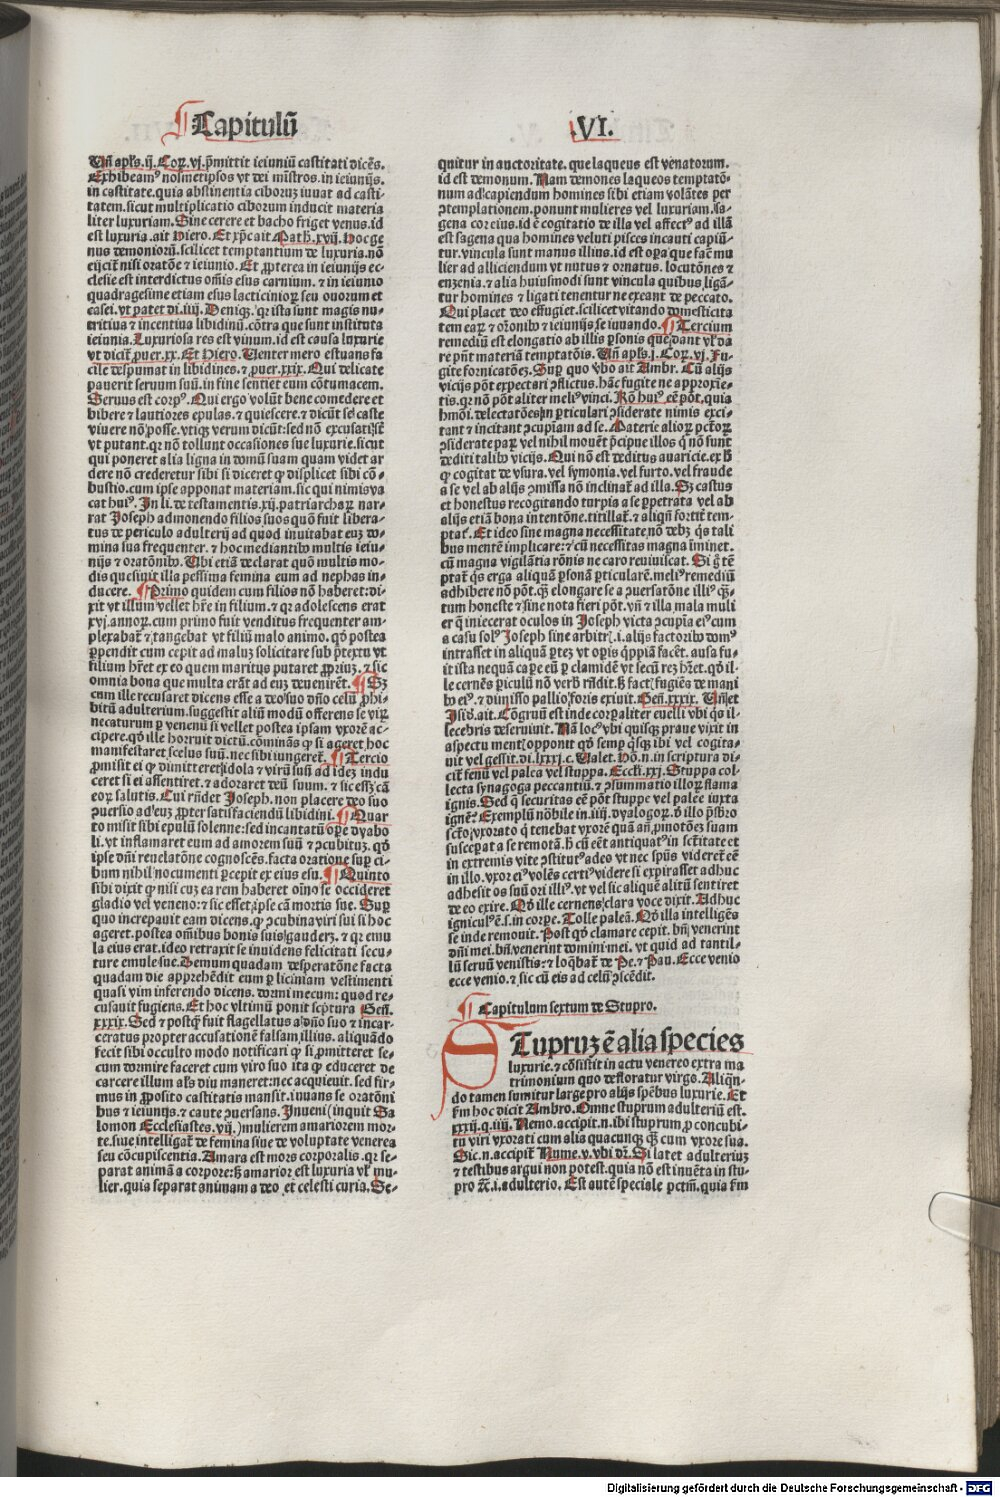 Capitulū
.VI.
Vñ apl's.ij. Coꝝ.vj. p̄mittit ieiuniū castitati dicēs.
Exhibeam⁹ nosmetipsos vt dei mīstros.in ieiunijs.
in castitate.quia abstinentia ciboruꝫ iuuat ad casti
tatem.sicut multiplicatio ciborum inducit materia
liter luxuriam. Sine cerere et bacho friget venus.id
est luxuria.ait Hiero. Et xp̄c ait Math.xvij. Hoc ge
nus demoniorū.scilicet temptantium de luxuria.nō
eijcit̄ nisi oratōe ⁊ ieiunio. Et ꝓpterea in ieiunijs ec-
clesie est interdictus om̄is esus carnium. ⁊ in ieiunio
quadragesime etiam esus lacticinioꝝ seu ouorum et
casei. vt patet di.iiij. Deniqꝫ. qꝛ ista sunt magis nu-
tritiua ⁊ incentiua libidinū.cōtra que sunt instituta
ieiunia. Luxuriosa res est vinum.id est causa luxurie
vt dicit̄ ꝓuer.xx. Et Hiero. Uenter mero estuans fa
cile despumat in libidines. ⁊ ꝓuer.xxix. Qui delicate
pauerit seruum suū.in fine sentiet eum cōtumacem.
Seruus est corp⁹. Qui ergo volūt bene comedere et
bibere ⁊ lautiores epulas. ⁊ quiescere. ⁊ dicūt se caste
viuere nō posse. vtiqꝫ verum dicūt:sed nō excusātſ
vt putant.qꝛ nō tollunt occasiones sue luxurie.sicut
qui poneret alia ligna in domū suam quam videt ar
dere nō crederetur sibi si diceret ꝙ displicet sibi cō-
bustio.cum ipse apponat materiam.sic qui nimis va
cat hui⁹. In li. de testamentis.xij.patriarchaꝝ nar-
rat Joseph admonendo filios suos quō fuit libera-
tus de periculo adulterij ad quod inuitabat euꝫ do-
mina sua frequenter. ⁊ hoc mediantibꝰ multis ieiu-
nijs ⁊ oratōnibꝰ. Ubi etiā declarat quō multis mo-
dis quesiuit illa pessima femina eum ad nephas in-
ducere. Primo quidem cum filios nō haberet:di-
xit vt illum vellet hr̄e in filium. ⁊ qꝛ adolescens erat
xvj.annoꝝ.cum primo fuit venditus frequenter am-
plexabat̄ ⁊ tangebat vt filiū malo animo. qd̄ postea
ꝑpendit cum cepit ad maluꝫ solicitare sub p̄textu vt
filium hr̄et ex eo quem maritus putaret ꝓpriuꝫ. ⁊ sic
omnia bona que multa erāt ad euꝫ deuenirēt. Sꝫ
cum ille recusaret dicens esse a deo suo dn̄o celū ꝓhi-
bitū adulterium.suggessit aliū modū offerens se virꝝ
necaturum ꝑ venenū si vellet postea ipsam vxorē ac-
cipere.qd̄ ille horruit dictū.cōminās ꝙ si ageret hoc
manifestaret scelus suū.nec sibi iungeret̄. Tercio
ꝓmisit ei ꝙ dimitteret idola ⁊ virū suū ad ideꝫ indu
ceret si ei assentiret. ⁊ adoraret deū suum. ⁊ sic esset cā
eoꝝ salutis. Cui rn̄det Joseph.non placere deo suo
ꝯuersio ad euꝫ ꝓpter satisfaciendū libidini. Quar
to misit sibi epulū solenne:sed incantatū oꝑe dyabo
li.vt inflamaret eum ad amorem suū ⁊ ꝯcubituꝫ. qd̄
ipse dn̄i reuelatōne cognoscēs.facta oratione suꝑ ci-
bum nihil nocumenti ꝑcepit ex eius esu. Quinto
sibi dixit ꝙ nisi cuꝫ ea rem haberet oīno se occideret
gladio vel veneno: ⁊ sic esset ip̄se cā mortis sue. Suꝑ
quo increpauit eam dicens.ꝙ ꝯcubina viri sui si hoc
ageret.postea om̄ibus bonis suis gauderꝫ. ⁊ qꝛ emu
la eius erat.ideo retraxit se inuidens felicitati secu-
ture emule sue. Demum quadam desperatōne facta
quadam die apprehēdit eum ꝑ liciniam vestimenti
quasi vim inferendo dicens. dormi mecum: quod re-
cusauit fugiens. Et hoc vltimū ponit scp̄tura Geñ.
xxxix. Sed ⁊ postqꝫ fuit flagellatus a dn̄o suo ⁊ incar-
ceratus propter accusationē falsam illius. aliquādo
fecit sibi occulto modo notificari ꝙ si ꝓmitteret se-
cum dormire faceret cum viro suo ita ꝙ educeret de
carcere illum al's diu maneret:nec acquieuit. sed fir-
mus in ꝓposito castitatis mansit.iuuans se oratōni
bus ⁊ ieiunijs. ⁊ caute ꝯuersans. Inueni (inquit Sa
lomon Ecclesiastes.vij.) mulierem amariorem mor-
te.siue intelligat̄ de femina siue de voluptate venerea
seu cōcupiscentia. Amara est mors corporalis.qꝛ se-
parat animā a corpore:sꝫ amarior est luxuria vl' mu-
lier.quia separat animam a deo et celesti curia. Se-
quitur in auctoritate. que laqueus est venatorum.
id est demonum. Nam demones laqueos temptatō-
num ad capiendum homines sibi etiam volātes per
ꝯtemplationem.ponunt mulieres vel luxuriam. Sa-
gena cor eius.id ē cogitatio de illa vel affect⁹ ad illā
est sagena qua homines veluti pisces incauti capiū-
tur.vincula sunt manus illius.id est oꝑa que facit̄ mu
lier ad alliciendum vt nutus ⁊ ornatus. locutōnes ⁊
enzenia. ⁊ alia huiusmodi sunt vincula quibus ligā-
tur homines ⁊ ligati tenentur ne exeant de peccato.
Qui placet deo effugiet.scilicet vitando domestici­ta
tem eaꝝ ⁊ oŕonibꝰ ⁊ ieiunijs se iuuando. Tercium
remediū est elongatio ab illis ꝑsonis que dant vl' da
re pn̄t materiā temptatōis. Vñ apl's.j. Coꝝ.vj. Fu-
gite fornicatōeꝫ. Suꝑ quo vbo ait Ambr. Cū alijs
vicijs pōt expectari ꝯflictus.hāc fugite ne approxie-
tis.qꝛ nō pōt aliter meli⁹ vinci. Rō hui⁹ eē pōt.quia
hmōi.delectatōes in ꝑticulari ꝯsiderate nimis exci-
tant ⁊ incitant ꝯcupiam ad se. Materie alioꝝ pctōꝝ
ꝯsiderate paꝝ vel nihil mouēt p̄cipue illos q nō sunt
dediti talibꝰ vicijs. Qui nō est deditus auaricie.ex hꝰ
ꝙ cogitat de vsura. vel symonia. vel furto. vel fraude
a se vel ab alijs ꝯmissa nō inclinat̄ ad illa. Sꝫ castus
et honestus recogitando turpia a se ꝑpetrata vel ab
alijs etiā bona intentōne.titillat̄. ⁊ aliqñ fortit̄ tem-
ptat̄. Et ideo sine magna necessitate nō debꝫ q's tali
bus mentē implicare: ⁊ cū necessitas magna iminet.
cū magna vigilātia rōnis ne caro reuiuiscat. Si g̊ tē
ptat̄ q's erga aliquā ꝑsonā ꝑticularē.meli⁹ remediū
adhibere nō pōt.qꝫ elongare se a ꝯuersatōne illi⁹ qꝫ-
tum honeste ⁊ sine nota fieri pōt. vñ ⁊ illa mala muli
er q iniecerat oculos in Joseph victa ꝯcupia ei⁹ cum
a casu sol⁹ Joseph sine arbitr̄.i. alijs factoribꝰ dom⁹
intrasset in aliquā ꝑteꝫ vt opis q̄ppiā facēt. ausa fu-
it ista nequā capere eū ꝑ clamidē vt secū reꝫ hr̄et. qd̄ il-
le cernēs ꝑiculū nō verbꝰ rn̄dit. sꝫ fact̄ fugiēs de mani
bꝰ ei⁹. ⁊ dimisso pallio foris exiuit. Geñ.xxxix. Vñ et
Isid̄.ait. Cōgruū est inde corꝑaliter euelli vbi q's il-
lecebris deseruiuit. Nā loc⁹ vbi quisqꝫ praue vixit in
aspectu ment̄ opponit qd̄ semꝑ q̊sqꝫ ibi vel cogita-
uit vel gessit.di.lxxxj.c. Valet. Hō.n.in scriptura di-
cit̄ fenū vel palea vel stuppa. Eccli.xxj. Stuppa col
lecta synagoga peccantiū. ⁊ ꝯsummatio illoꝝ flama
ignis. Sed q securitas eē pōt stuppe vel palee iuxta
ignē? Exemplū nōbile in.iiij.dyalogoꝝ. d̄ illo p̄sbr̄o
sctō.vxorato q tenebat vxorē quā añ ꝓmotōeꝫ suam
susceperat a se remotā. hꝰ cū eēt antiquat⁹ in sctitate et
in extremis vite ꝯstitut⁹ adeo vt nec spūs videret̄ eē
in illo. vxor ei⁹ volēs certi⁹ videre si expirasset adhuc
adhesit os suū ori illi⁹. vt vel sic aliquē alitū sentiret
de eo exire. Qd̄ ille cernens clara voce dixit. Adhuc
ignicul⁹ ē.s.in corꝑe. Tolle paleā. Qd̄ illa intelligēs
se inde remouit. Post qd̄ clamare cepit. bn̄ venerint
dn̄i mei. bn̄ venerint domini mei. vt quid ad tantil-
lū seruū venistis: ⁊ loq̄bat̄ de Pe. ⁊ Pau. Ecce venio
ecce venio. ⁊ sic cū eis ad celū ꝯscēdit.
Capitulum sextum de Stupro.
STupruꝫ ē alia species
luxurie. ⁊ cōsistit in actu venereo extra ma
trimonium quo defloratur virgo. Aliqñ-
do tamen sumitur large pro alijs spēbus luxurie. Et
fm̄ hoc dicit Ambro. Omne stuprum adulteriū est.
xxxij.q.iiij. Nemo.accipit.n.ibi stuprum ꝓ concubi-
tu viri vxorati cum alia quacunqꝫ qꝫ cum vxore sua.
Sic.n.accipit̄ Nume.v.vbi dr̄. Si latet adulteriuꝫ
⁊ testibus argui non potest.quia nō est inuēta in stu-
pro ⁊c̄.i.adulterio. Est autē speciale pctm̄.quia fm̄
Digitalisierung gefördert durch die Deutsche Forschungsgemeinschaft - DFG